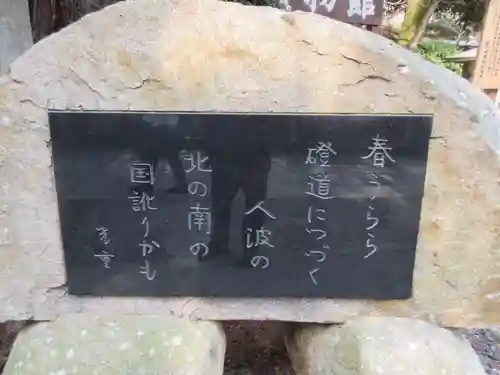 物館
春うらら
磴道につづく
人波の
北の南の
国訛りかも